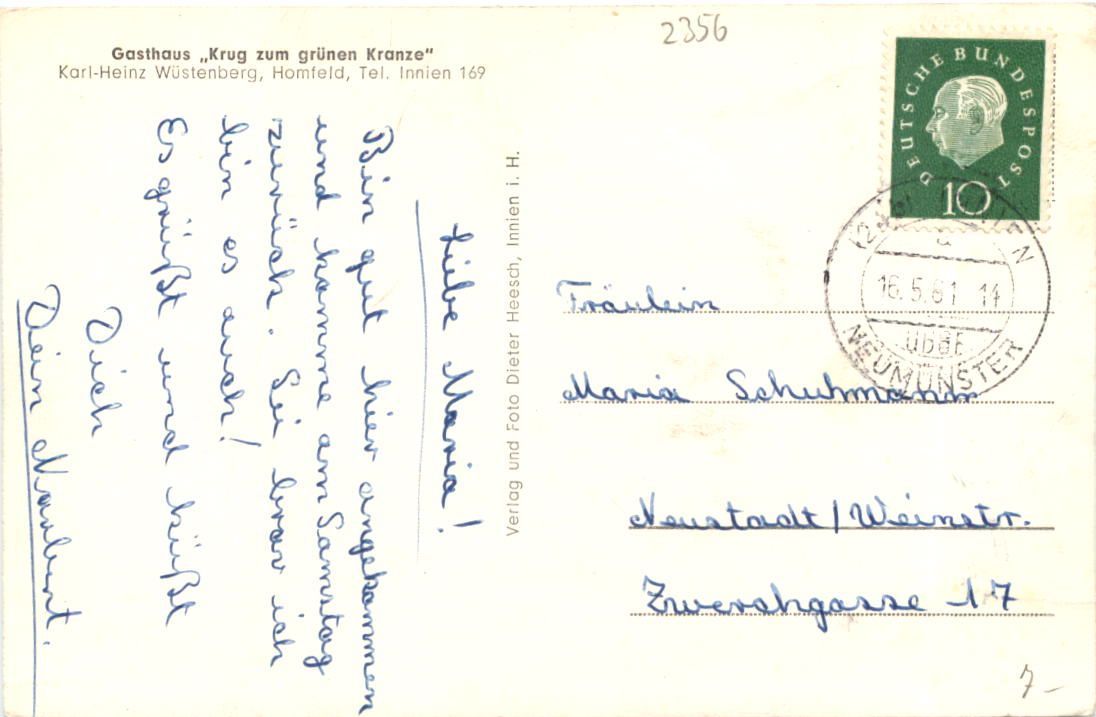 2356
Gasthaus „Krug zum grünen Kranze"
Karl-Heinz Wüstenberg, Homfeld, Tel. Innien 169
Liebe Maria!
Bin gut hier angekommen
und komme am Samstag
zurück. Sei brav ich
bin es auch!
Es grüßt und küßt
Dich
Dein Norbert.
Verlag und Foto Dieter Heesch, Innien i. H.
DEUTSCHE BUNDESPOST
10
a
16.5.61 14
über
NEUMÜNSTER
Fräulein
Maria Schuhmann
Neustadt/Weinstr.
Zwerchgasse 17
7-